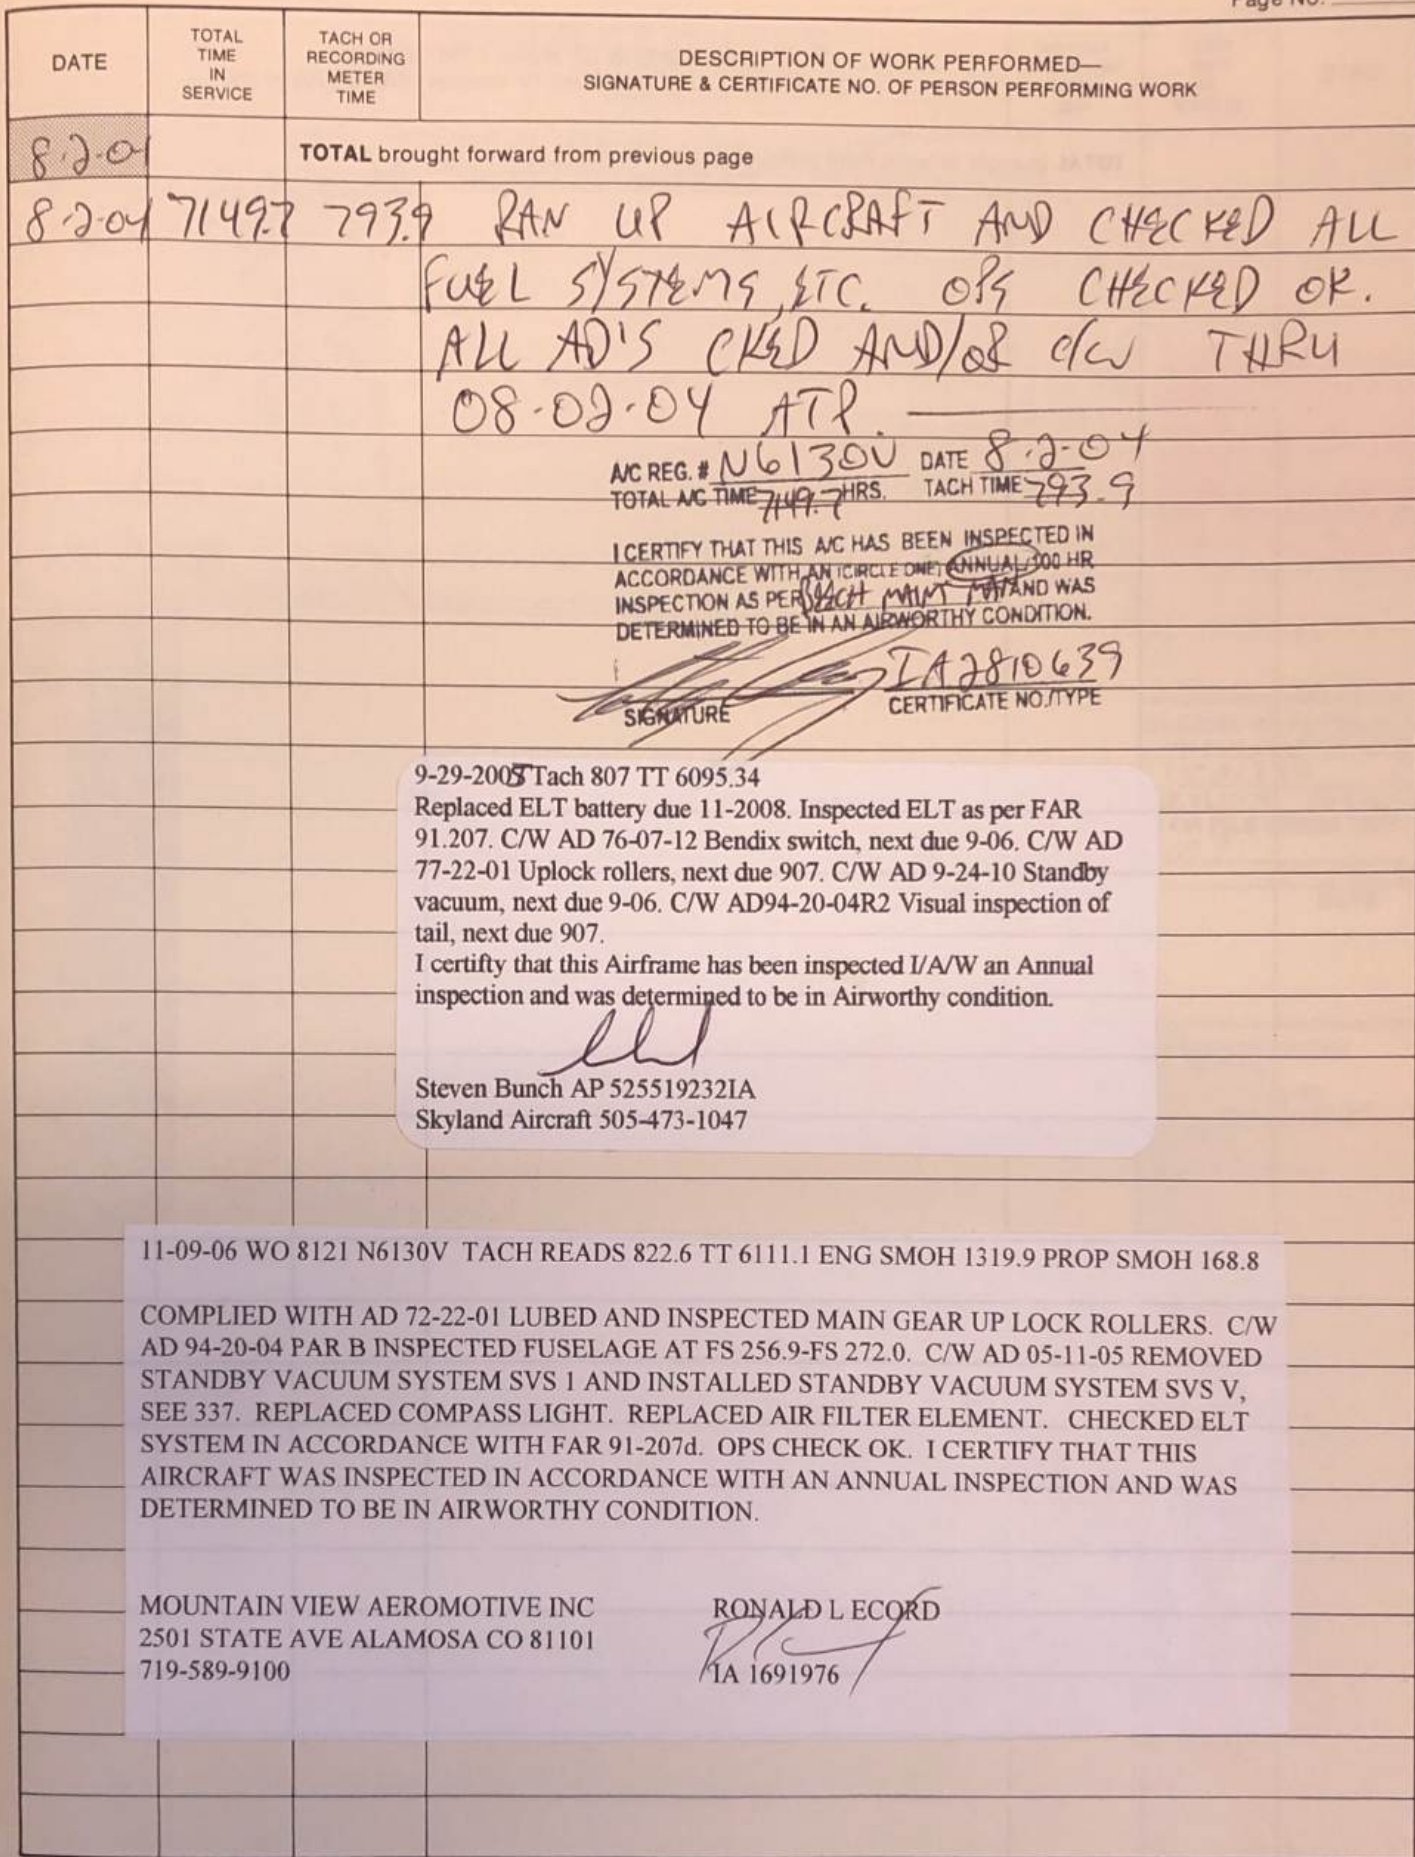 Page No.
DATE
TOTAL TIME IN SERVICE
TACH OR RECORDING METER TIME
DESCRIPTION OF WORK PERFORMED—
SIGNATURE & CERTIFICATE NO. OF PERSON PERFORMING WORK
8-2-04
TOTAL brought forward from previous page
8-2-04 7149.7 793.9 RAN UP AIRCRAFT AND CHECKED ALL
FUEL SYSTEMS, ETC. OPS CHECKED OK.
ALL AD'S CKED AND/OR C/W THRU
08-02-04 ATP.
A/C REG. # N6130V DATE 8-2-04
TOTAL A/C TIME 7149.7 HRS. TACH TIME 793.9
I CERTIFY THAT THIS A/C HAS BEEN INSPECTED IN
ACCORDANCE WITH AN (CIRCLE ONE) ANNUAL/100 HR
INSPECTION AS PER BEECH MAINT MAN AND WAS
DETERMINED TO BE IN AN AIRWORTHY CONDITION.
IA2810639
SIGNATURE CERTIFICATE NO./TYPE
9-29-2005 Tach 807 TT 6095.34
Replaced ELT battery due 11-2008. Inspected ELT as per FAR
91.207. C/W AD 76-07-12 Bendix switch, next due 9-06. C/W AD
77-22-01 Uplock rollers, next due 907. C/W AD 9-24-10 Standby
vacuum, next due 9-06. C/W AD94-20-04R2 Visual inspection of
tail, next due 907.
I certifty that this Airframe has been inspected I/A/W an Annual
inspection and was determined to be in Airworthy condition.
Steven Bunch AP 525519232IA
Skyland Aircraft 505-473-1047
11-09-06 WO 8121 N6130V TACH READS 822.6 TT 6111.1 ENG SMOH 1319.9 PROP SMOH 168.8
COMPLIED WITH AD 72-22-01 LUBED AND INSPECTED MAIN GEAR UP LOCK ROLLERS. C/W
AD 94-20-04 PAR B INSPECTED FUSELAGE AT FS 256.9-FS 272.0. C/W AD 05-11-05 REMOVED
STANDBY VACUUM SYSTEM SVS 1 AND INSTALLED STANDBY VACUUM SYSTEM SVS V,
SEE 337. REPLACED COMPASS LIGHT. REPLACED AIR FILTER ELEMENT. CHECKED ELT
SYSTEM IN ACCORDANCE WITH FAR 91-207d. OPS CHECK OK. I CERTIFY THAT THIS
AIRCRAFT WAS INSPECTED IN ACCORDANCE WITH AN ANNUAL INSPECTION AND WAS
DETERMINED TO BE IN AIRWORTHY CONDITION.
MOUNTAIN VIEW AEROMOTIVE INC RONALD L ECORD
2501 STATE AVE ALAMOSA CO 81101
719-589-9100 IA 1691976